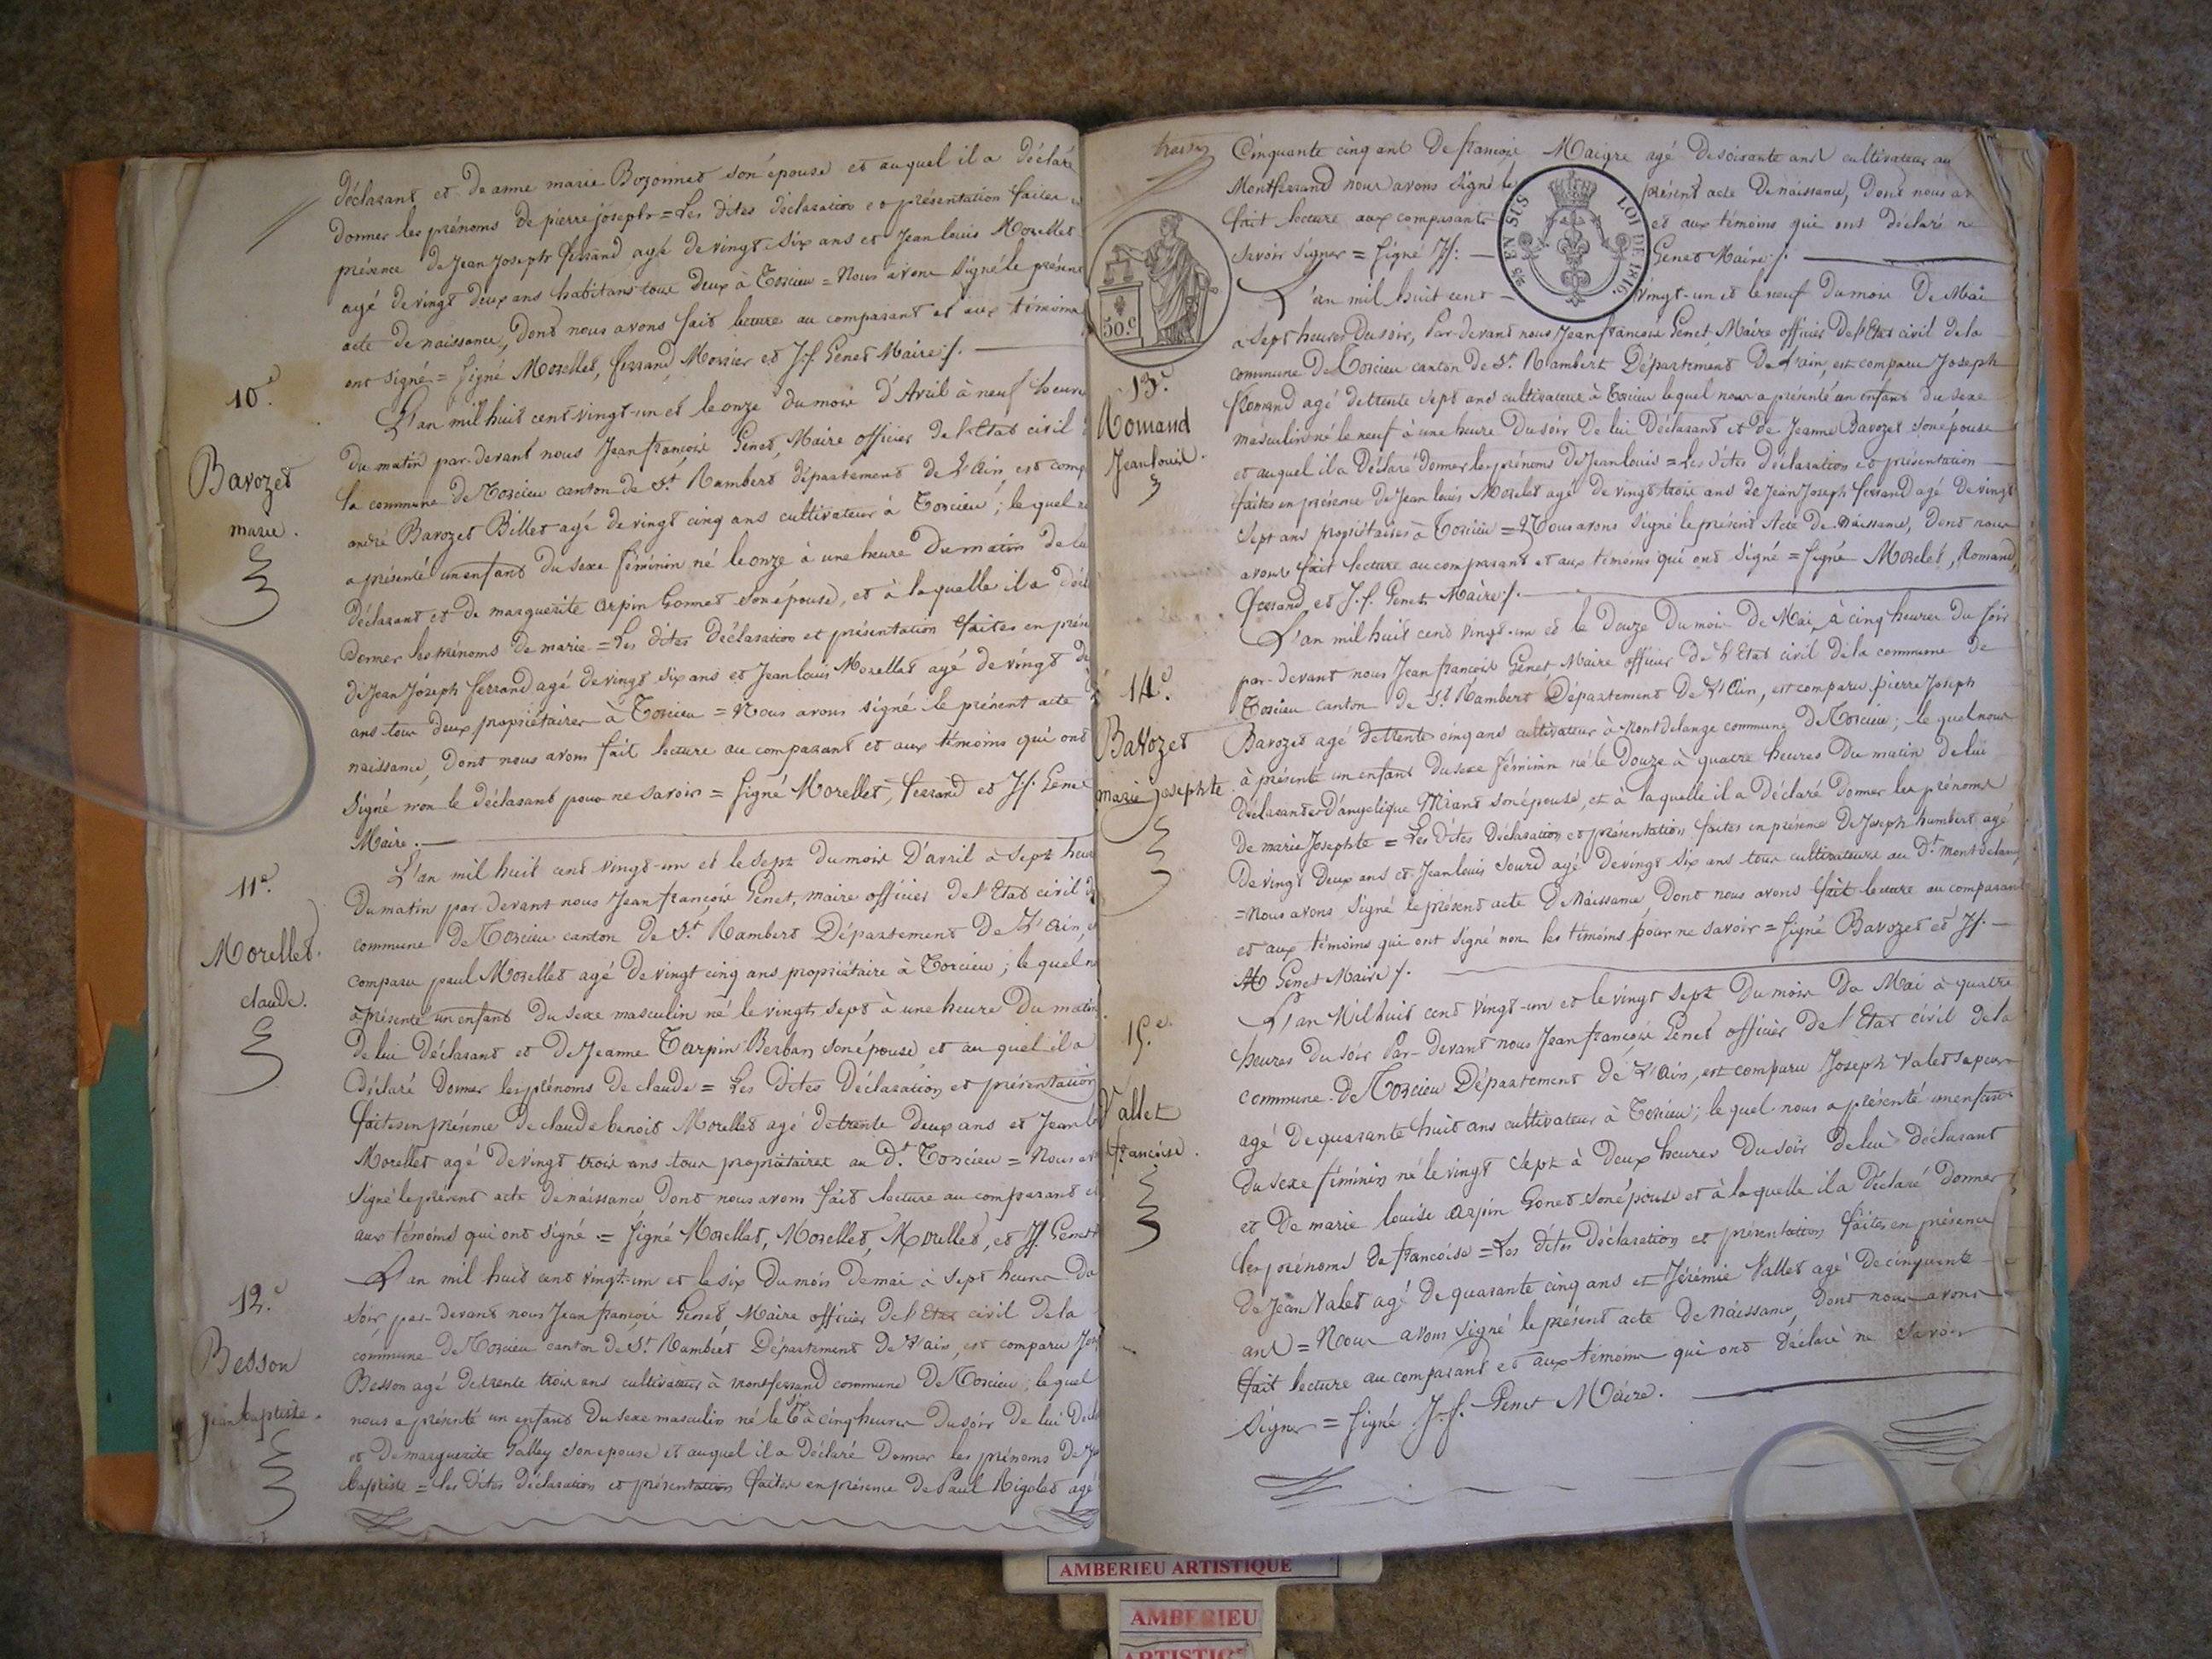 déclarant et de anne marie Bozonnet son épouse et auquel il a déclaré
donner les prénoms de pierre joseph = Les dites déclaration et présentation faites en
présence de Jean Joseph ferrand agé de vingt six ans et Jean louis Morellet
agé de vingt deux ans habitans tous deux à Torcieu = Nous avons signé le présent
acte de naissance, dont nous avons fait lecture au comparant et aux témoins
ont signé = signé Morellet, ferrand et J.f. Genet Maire ./.
10.e
Bavozet
marie.
L'an mil huit cent vingt-un et le onze du mois d'Avril à neuf heures
du matin par-devant nous Jean françois Genet, Maire officier de l'Etat civil
la commune de Torcieu canton de St. Rambert département de L'Ain est comp
andré Bavozet Billet agé de vingt cinq ans cultivateur à Torcieu; lequel n
a présenté un enfant du sexe féminin né le onze à une heure du matin de lu
déclarant et de marguerite arpin Gonnet son épouse, et à laquelle il a décl
donner les prénoms de marie = Les dites déclaration et présentation faites en prése
de Jean Joseph ferrand agé de vingt six ans et Jean louis Morellet agé de vingt de
ans tous deux propriétaires à Torcieu = Nous avons signé le présent acte
naissance, dont nous avons fait lecture au comparant et aux témoins qui ont
signé non le déclarant pour ne savoir = signé Morellet, ferrand et J.f. Genet
Maire.
11.e
Morellet.
claude.
L'an mil huit cent vingt-un et le sept du mois d'avril à sept heur
du matin par devant nous Jean françois Genet, maire officier de l'Etat civil de
commune de Torcieu canton de St. Rambert Département de L'Ain, e
comparu paul Morellet agé de vingt cinq ans propriétaire à Torcieu; lequel n
a présenté un enfant du sexe masculin né le vingt sept à une heure du matin
de lui déclarant et de Jeanne Tarpin Berban son épouse et auquel il a
déclaré donner les prénoms de claude = Les dites déclaration et présentation
faites en présence de claude benoit Morellet agé de trente deux ans et Jean lo
Morellet agé de vingt trois ans tous propriétaires au dt. Torcieu = Nous av
signé le présent acte de naissance dont nous avons fait lecture au comparant et
aux témoins qui ont signé = signé Morellet, Morellet, Morellet, et J.f. Genet
12.e
Besson
jean baptiste.
L'an mil huit cent vingt-un et le six du mois de mai à sept heures du
soir, par-devant nous Jean françois Genet, Maire officier de l'Etat civil de la
commune de Torcieu canton de St. Rambert Département de l'ain, est comparu
Besson agé de trente trois ans cultivateur à montferrand commune de Torcieu; lequel
nous a présenté un enfant du sexe masculin né le 6 à cinq heures du soir de lui décl
et de marguerite Falley son épouse et auquel il a déclaré donner les prénoms de
baptiste = Les dites déclaration et présentation faites en présence de Paul Rigolet agé
Cinquante cinq ans de françois Maigre agé de soixante ans cultivateurs au
Montferrand nous avons signé le présent acte de naissance, dont nous av
fait lecture aux comparants et aux témoins qui ont déclaré ne
savoir signer = signé J.f. Genet Maire ./.
50.c
25 EN SUS
LOI DE 1816.
13.e
Romand
Jean louis.
L'an mil huit cent vingt-un et le neuf du mois de Mai
a sept heures du soir, Par-devant nous Jean françois Genet, Maire officier de l'Etat civil de la
commune de Torcieu canton de St. Rambert Département de L'ain, est comparu Joseph
Romand agé de trente sept ans cultivateur à Torcieu lequel nous a présenté un enfant du sexe
masculin né le neuf à une heure du soir de lui déclarant et de Jeanne Bavozet son épouse
et auquel il a déclaré donner les prénoms de Jean louis = Les dites déclaration et présentation
faites en présence de Jean louis Morelet agé de vingt trois ans de Jean Joseph ferrand agé de vingt
sept ans propriétaires à Torcieu = Nous avons signé le présent Acte de Naissance, dont nous
avons fait lecture au comparant et aux témoins qui ont signé = signé Morelet, Romand,
ferrand et J.f. Genet Maire ./.
14.e
Bavozet
marie josephte.
L'an mil huit cent vingt-un et le douze du mois de Mai, à cinq heures du soir
par-devant nous Jean françois Genet, Maire officier de l'Etat civil de la commune de
Torcieu canton de St. Rambert Département de L'Ain, est comparu pierre Joseph
Bavozet agé de trente cinq ans cultivateur à Montdelange commune de Torcieu; lequel nous
à présenté un enfant du sexe féminin né le douze à quatre heures du matin de lui
déclarant et d'angelique Miant son épouse, et à laquelle il a déclaré donner les prénoms
de marie Josephte = Les dites déclaration et présentation faites en présence de Joseph humbert agé
de vingt deux ans et Jean louis Sourd agé de vingt six ans tous cultivateurs au dt. montdelange
= Nous avons signé le présent acte de Naissance dont nous avons fait lecture au comparant
et aux témoins qui ont signé non les témoins pour ne savoir = signé Bavozet et J.f.
Genet Maire ./.
15.e
Vallet
francoise.
L'an Mil huit cent vingt-un et le vingt sept du mois de Mai à quatre
heures du soir Par-devant nous Jean françois Genet officier de l'Etat civil de la
commune de Torcieu Département de L'Ain, est comparu Joseph Valet Sapeur
agé de quarante huit ans cultivateur à Torcieu; lequel nous a présenté un enfant
du sexe féminin né le vingt sept à deux heures du soir de lui déclarant
et de marie louise arpin Gonet son épouse et à laquelle il a déclaré donner
les prénoms de francoise = Les dites déclaration et présentation faites en présence
de Jean Valet agé de quarante cinq ans et Jérémie Vallet agé de cinquante
ans = Nous avons signé le présent acte de Naissance, dont nous avons
fait lecture au comparant et aux témoins qui ont déclaré ne savoir
signer = signé J.f. Genet Maire.
AMBERIEU ARTISTIQUE
AMBERIEU
ARTISTIQ